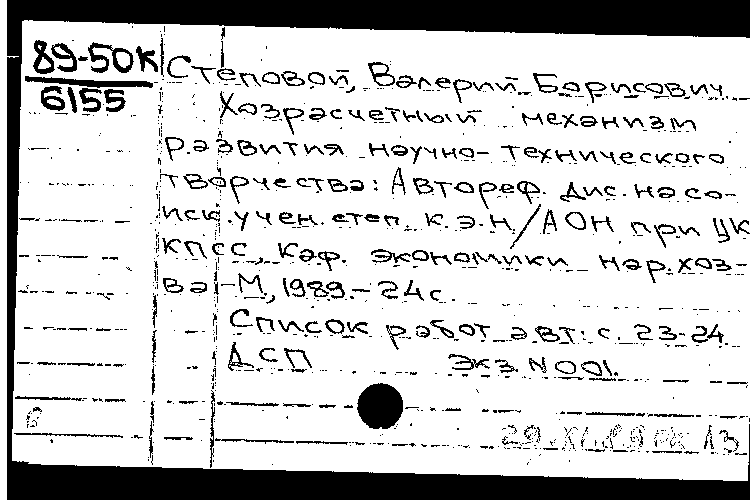 89-50К
6155
Степовой, Валерий Борисович
Хозрасчетный механизм
развития научно-технического
творчества: Автореф. дис. на со-
иск. учен. степ. к.э.н/АОН при ЦК
КПСС, Каф. экономики нар. хоз-
ва.-М, 1989.-24с.
Список работ авт.: с. 23-24
ДСП Экз. N 001.
29.XI.89 13